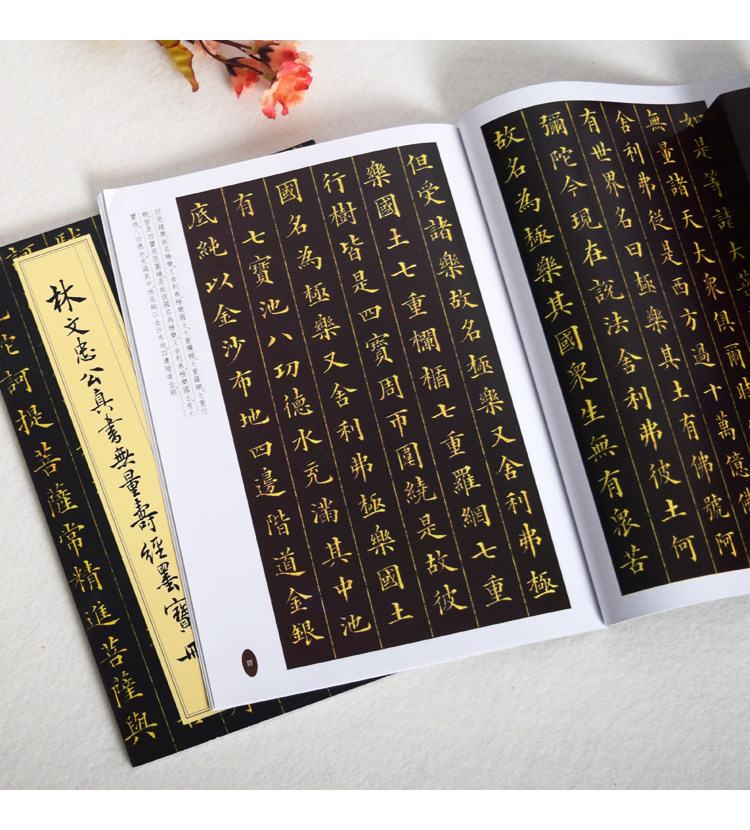 如是等諸大
無量諸天大衆俱爾
舍利弗從是西方過十萬億
有世界名曰極樂其土有佛號阿
彌陀今現在說法舍利弗彼土何
故名為極樂其國衆生無有衆苦
但受諸樂故名極樂又舍利弗極
樂國土七重欄楯七重羅網七重
行樹皆是四寶周帀圍繞是故彼
國名為極樂又舍利弗極樂國土
有七寶池八功德水充滿其中池
底純以金沙布地四邊階道金銀
四
林文忠公真書無量壽經墨寶冊
陀訶提菩薩常精進菩薩與